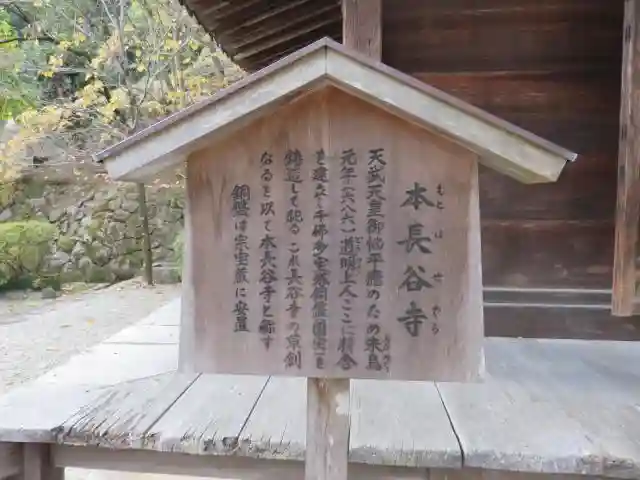 本長谷寺
もとはせでら
天武天皇御悩平癒のため朱鳥
元年(六八六)道明上人ここに精舎
を建て千仏多宝塔銅盤図を
鋳造して祀るこれ長谷寺の草創
なるを以て本長谷寺と称す
銅盤は宗宝蔵に安置